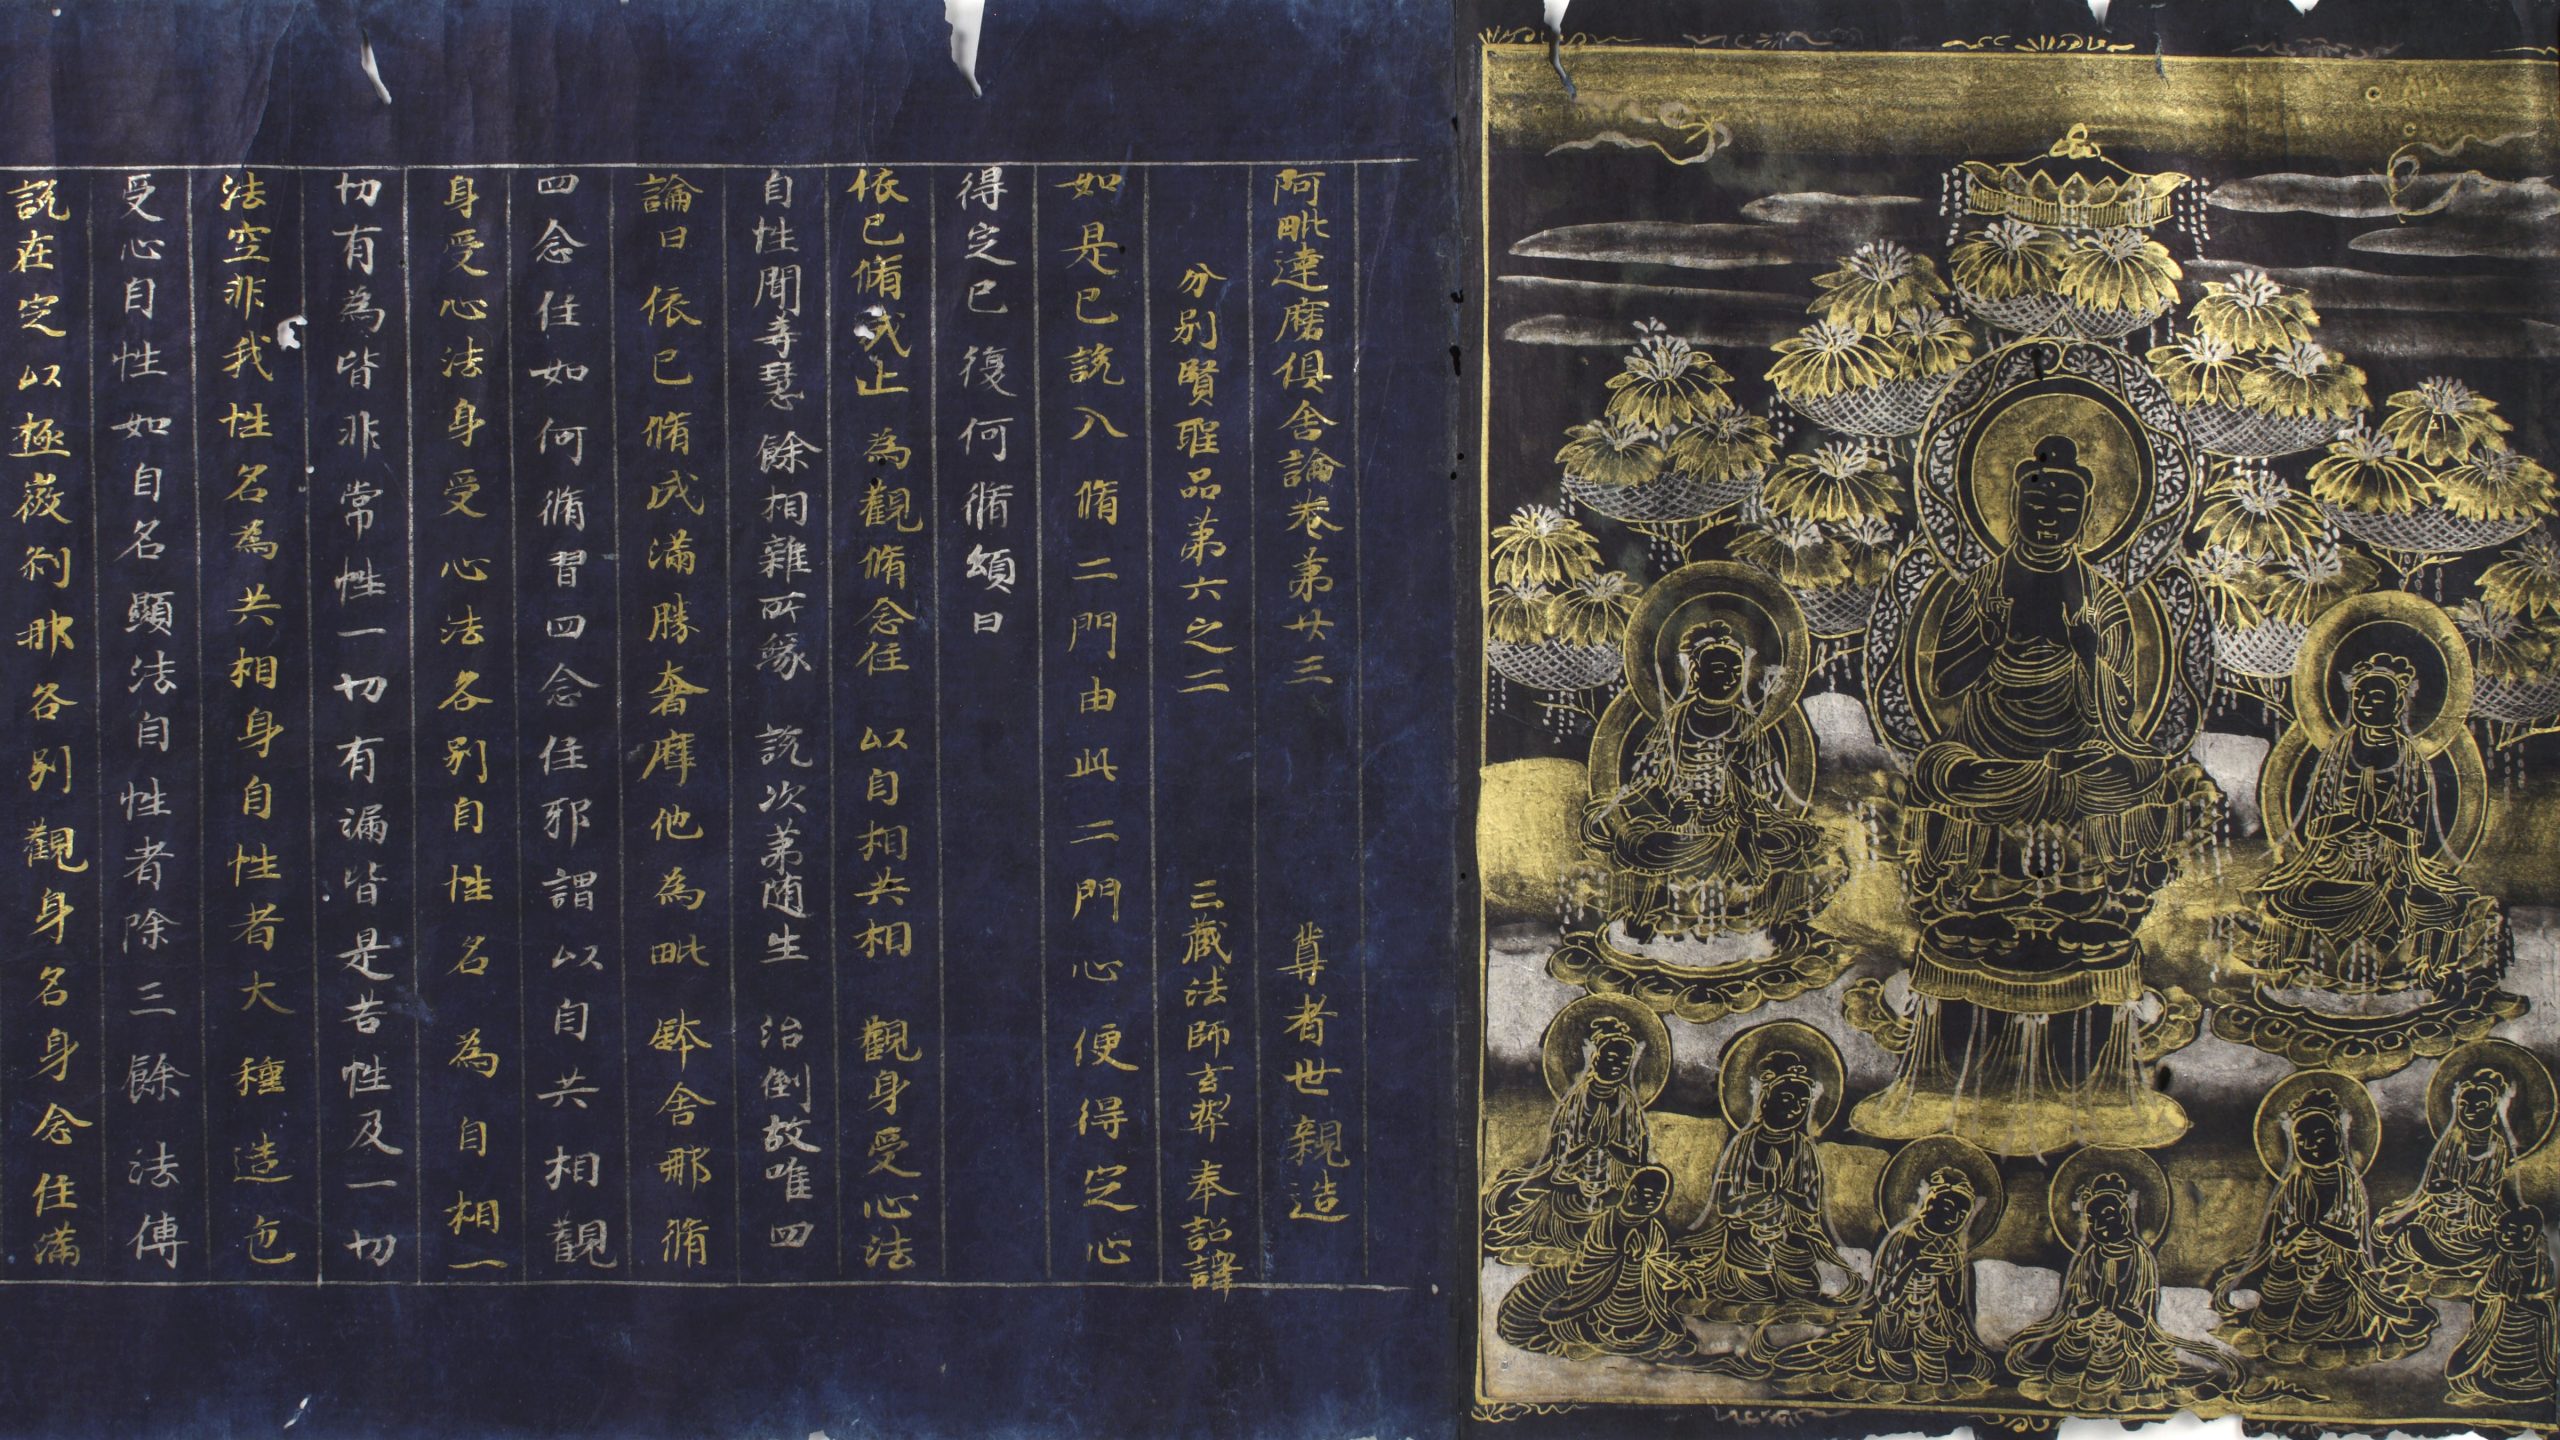 阿毗達磨俱舍論卷第廿三 尊者世親造
分别賢聖品第六之二 三藏法師玄奘奉詔譯
如是已說入脩二門由此二門心便得定心
得定已復何脩頌曰
依已脩成止 為觀脩念住 以自相共相 觀身受心法
自性聞等慧 餘相雜所緣 說次第随生 治倒故唯四
論曰依已脩成滿勝奢摩他為毗鉢舍那脩
四念住如何脩習四念住邪謂以自共相觀
身受心法身受心法各別自性名為自相一
切有為皆非常性一切有漏皆是苦性及一切
法空非我性名為共相身自性者大種造色
受心自性如自名顯法自性者除三餘法傳
說在定以極微剎那各別觀身名身念住滿